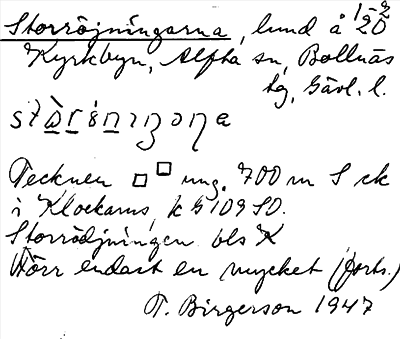 Storröjningarna, lund å 120
Kyrkbyn, Alfta sn, Bollnäs
tg, Gävl. l.
Tecknen □ □ ung. 700 m S ck
i Klockams, k G 109 SO.
Storrödjningen bls K
Förr endast en mycket (forts.)
T. Birgerson 1947